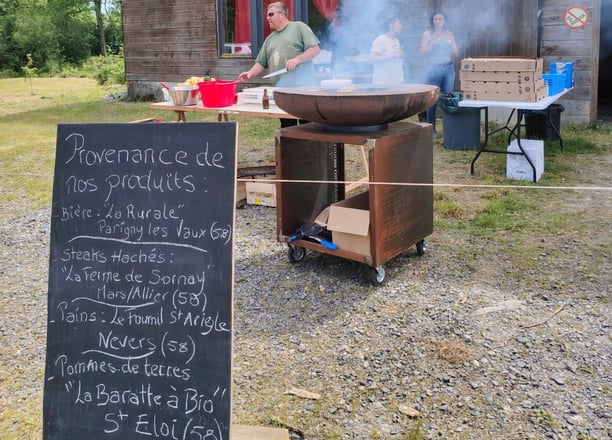 Provenance de
nos produits :
- Bière : "La Rurale"
Parigny les Vaux (58)
- Steaks Hachés :
"La Ferme de Sornay"
Mars/Allier (58)
- Pains : Le Fournil St Arigle
Nevers (58)
- Pommes de terres
"La Baratte à Bio"
St Eloi (58)